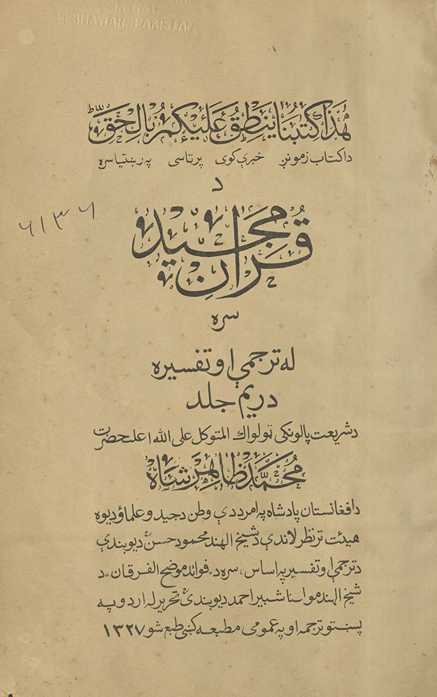 هٰذَا كِتٰبُنَا يَنْطِقُ عَلَيْكُمْ بِالْحَقِّ
دا کتاب زمونږ خبرې کوی پرتاسی په رښتیا سره
د
قُرْاٰنِ مَجِیْد
سره
له ترجمې او تفسیره
دریم جلد
د شریعت پالونکی ټولواک المتوکل علی الله اعلیحضرت
مُحَمَّد ظَاهِر شَاه
د افغانستان پادشاه په امر ددې وطن د جیدو علماؤ دیوه
هیئت تر نظر لاندې د شیخ الهند محمود حسنؒ دیوبندي
د ترجمې او تفسیر په اساس، سره د فوائد موضح الفرقان د
شیخ الهند مولٰنا شبیر احمد دیوبندیؒ تحریر له اردو په
پښتو ترجمه او په عمومی مطبعه کښی طبع شو ۱۳۲۷
۶۱۳۶
PESHAWAR PAKISTAN